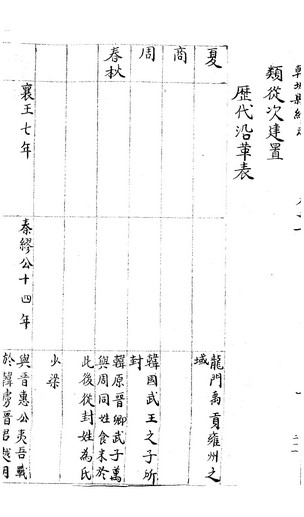 類從次建置
歷代沿革表
夏
龍門禹貢雍州之
域
商
周
韓國武王之子所
封
春秋
韓原晉卿武子萬
與周同姓食采於
此後從封姓為氏
少梁
襄王七年
秦繆公十四年
與晉惠公夷吾戰
於韓虜晉君越月